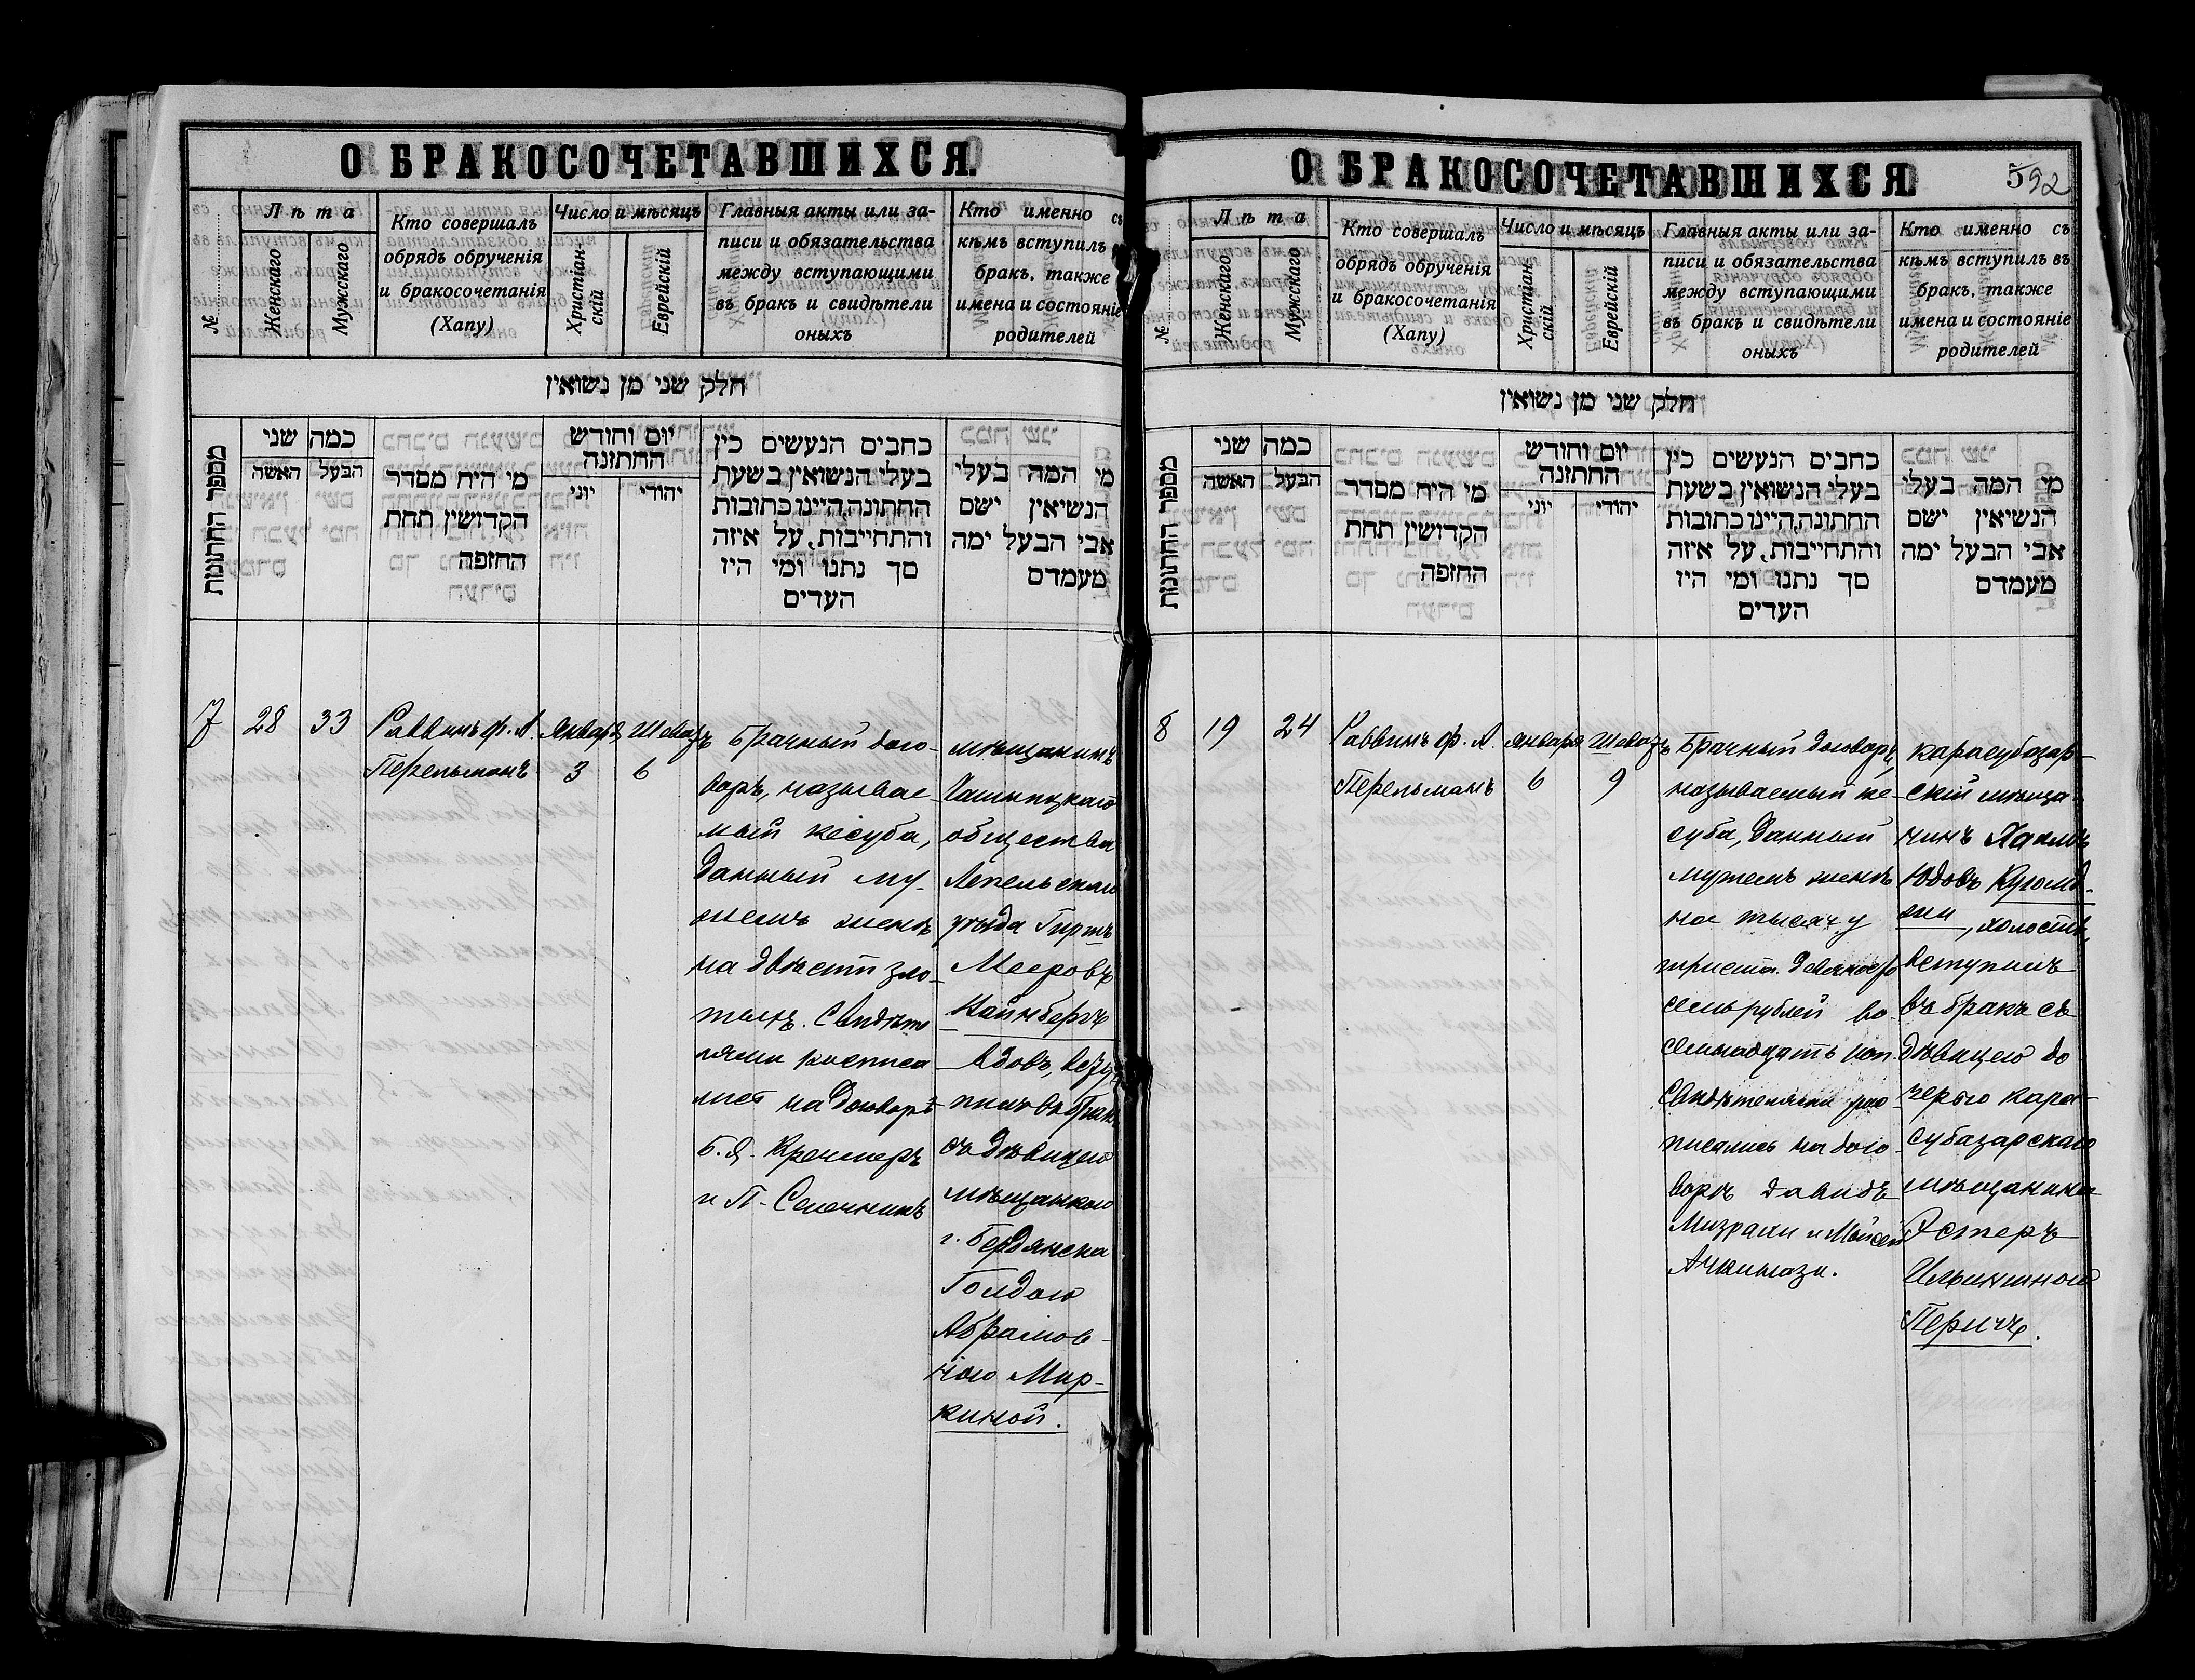 О БРАКОСОЧЕТАВШИХСЯ.
№
Лѣта
Женскаго
Мужскаго
Кто совершалъ
обрядъ обрученія
и бракосочетанія
(Хапу)
Число и мѣсяцъ
Христіан-
скій
Еврейскій
Главныя акты или за-
писи и обязательства
между вступающими
въ бракъ и свидѣтели
оныхъ
Кто именно съ
кѣмъ вступилъ
бракъ, также
имена и состояніе
родителей
חלק שני מן נשואין
מספר החתונות
כמה שני
האשה
הבעל
מי היח מסדר
הקדושין תחת
החופה
יום וחודש
החתונה
יוני
יהודי
כתבים הנעשים בין
בעלי הנשואין בשעת
החתונה,היינו כתובות
והתחייבות, על איזה
סך נתנו ומי היו
העדים
מי המה בעלי
הנשיאין ישם
אבי הבעל ימה
מעמדם
7
28
33
Раввинъ Ф. А.
Перельманъ
Января
3
Шеватъ
6
Брачный дого-
воръ, называе-
мый кесуба,
данный му-
жемъ женѣ
на двѣсти зло-
тыхъ. Свидѣте
лями росписа
лись на договорѣ
Б. Я.
и П.
мѣщанинъ
общества
Лепельскаго
уѣзда Гиршъ
Мееровъ
Вайнбергъ
вдовъ, всту
пилъ въ бракъ
съ дѣвицею
мѣщанкою
г. Бердянска
Голдою
Абрамов-
ною Мир-
киной.
О БРАКОСОЧЕТАВШИХСЯ
592
№
Лѣта
Женскаго
Мужскаго
Кто совершалъ
обрядъ обрученія
и бракосочетанія
(Хапу)
Число и мѣсяцъ
Христіан-
скій
Еврейскій
Главныя акты или за-
писи и обязательства
между вступающими
въ бракъ и свидѣтели
оныхъ
Кто именно съ
кѣмъ вступилъ въ
бракъ, также
имена и состояніе
родителей
חלק שני מן נשואין
מספר החתונות
כמה שני
האשה
הבעל
מי היח מסדר
הקדושין תחת
החופה
יום וחודש
החתונה
יוני
יהודי
כתבים הנעשים בין
בעלי הנשואין בשעת
החתונה,היינו כתובות
והתחייבות, על איזה
סך נתנו ומי היו
העדים
מי המה בעלי
הנשיאין ישם
אבי הבעל ימה
מעמדם
8
19
24
Раввинъ Ф. А.
Перельманъ
Января
6
Шеватъ
9
Брачный договоръ,
называемый ке-
суба, данный
мужемъ женѣ
на тысячу
триста девяносто
семь рублей во
семнадцать коп.
Свидѣтелями рос
писались на дого
ворѣ Давидъ
Мизрахи и Мойсей
Ачкинази.
карасубазар-
скій мѣща-
нинъ Хаимъ
, холостъ,
вступилъ
въ бракъ съ
дѣвицею до
черью кара-
субазарскаго
мѣщанина
Эстеръ
Ильиничной
Перичъ.